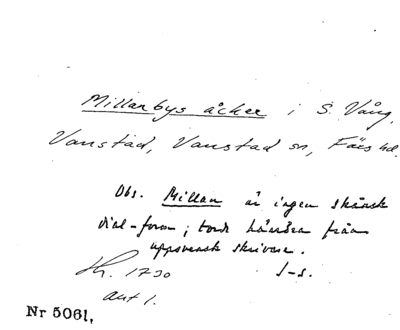 Millanbys åcker i S. Vång,
Vanstad, Vanstad sn, Färs hd.
Obs. Millan är ingen skånsk
dial-form; torde härröra från
uppsvensk skrivare.
Lh. 1730 J-s.
akt 1.
Nr 5061.